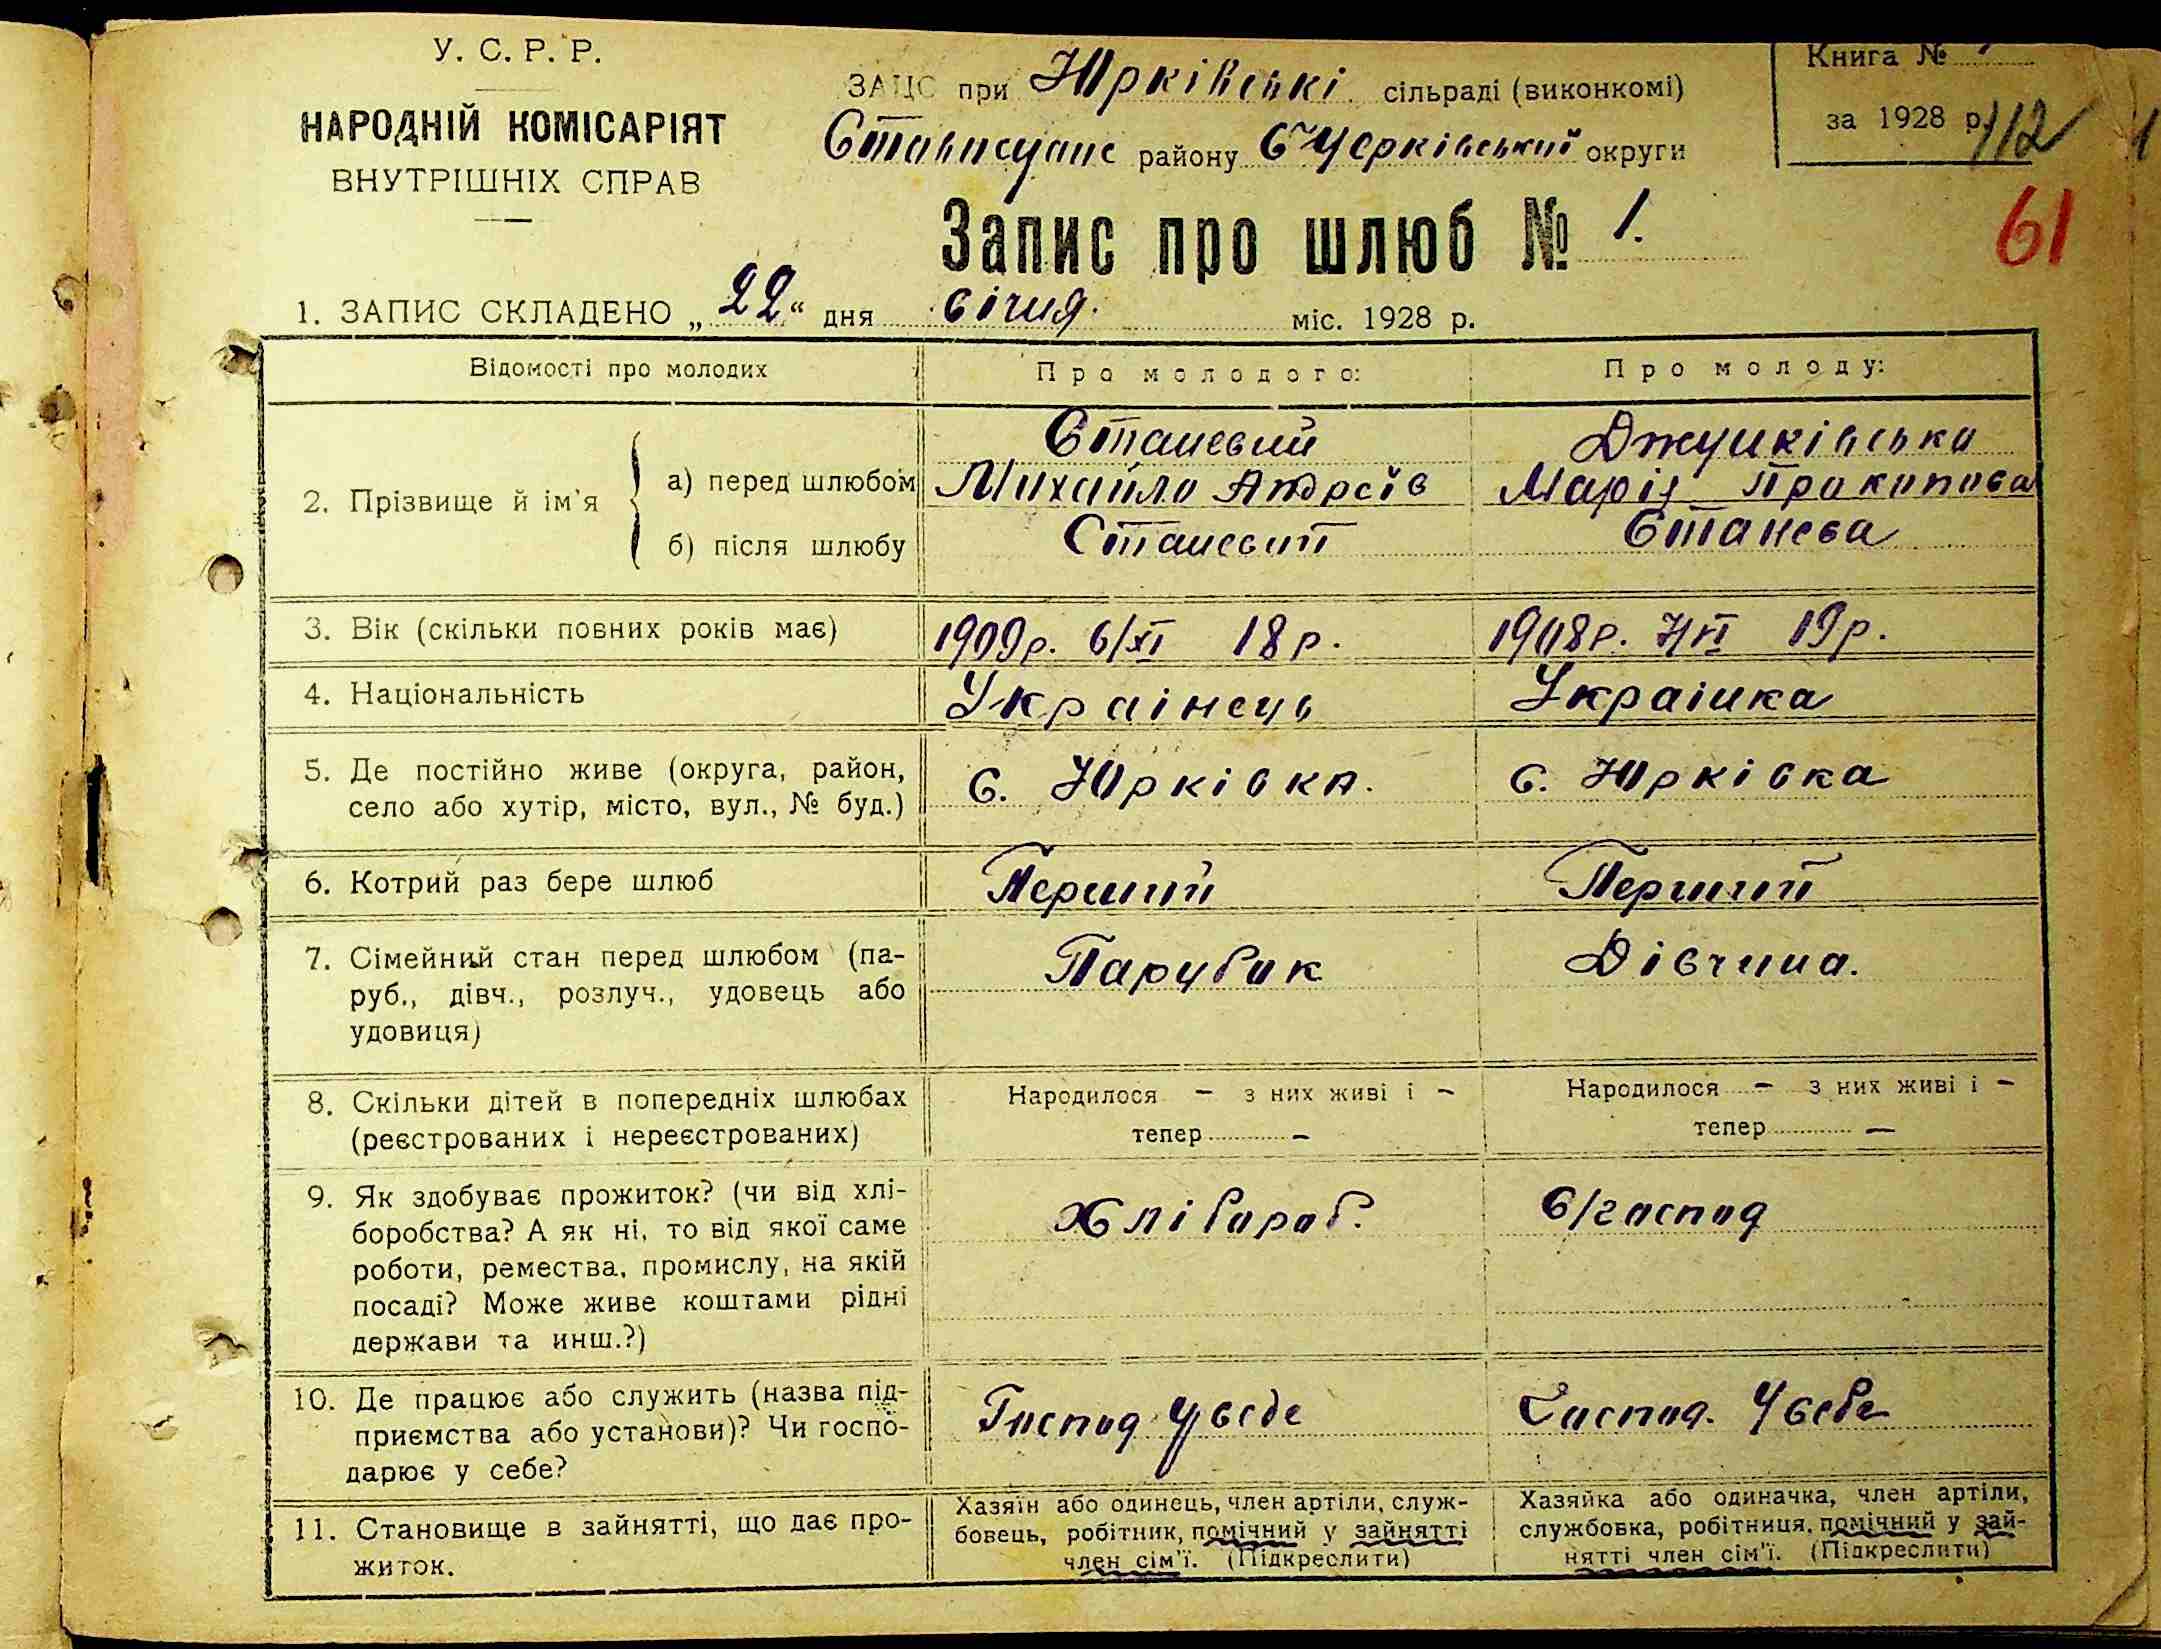 У. С. Р. Р.
НАРОДНІЙ КОМІСАРІЯТ
ВНУТРІШНІХ СПРАВ
ЗАЦС при Юрківські сільраді (виконкомі)
району Б Церківський округи
Книга №
за 1928 р.
112
61
Запис про шлюб № 1.
1. ЗАПИС СКЛАДЕНО „22“ дня січня міс. 1928 р.
Відомості про молодих
Про молодого:
Про молоду:
2. Прізвище й ім'я
а) перед шлюбом
Станевий
Михайло Андреїв
Джунківська
Марія Прокопова
б) після шлюбу
Станевий
Станева
3. Вік (скільки повних років має)
1909р. 6/XI 18 р.
1908р. 19 р.
4. Національність
Українець
Українка
5. Де постійно живе (округа, район,
село або хутір, місто, вул., № буд.)
с. Юрківка.
с. Юрківка
6. Котрий раз бере шлюб
Перший
Перший
7. Сімейний стан перед шлюбом (па-
руб., дівч., розлуч., удовець або
удовиця)
Парубок
Дівчина.
8. Скільки дітей в попередніх шлюбах
(реєстрованих і нереєстрованих)
Народилося – з них живі і –
тепер –
Народилося – з них живі і –
тепер –
9. Як здобуває прожиток? (чи від хлі-
боробства? А як ні, то від якої саме
роботи, ремества, промислу, на якій
посаді? Може живе коштами рідні
держави та инш.?)
Хлібороб.
с/господ
10. Де працює або служить (назва під-
приємства або установи)? Чи госпо-
дарює у себе?
Господ у себе
Господ. У себе
11. Становище в зайнятті, що дає про-
житок.
Хазяїн або одинець, член артіли, служ-
бовець, робітник, помічний у зайнятті
член сім'ї. (Підкреслити)
Хазяйка або одиначка, член артіли,
службовка, робітниця, помічний у зай-
нятті член сім'ї. (Підкреслити)